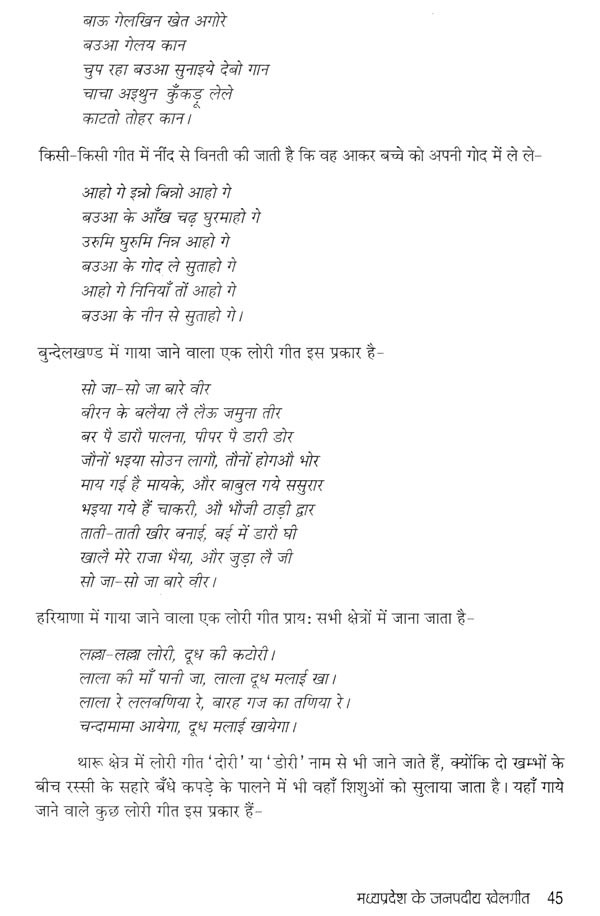 बाऊ गेलखिन खेत अगोरे
बउआ गेलय कान
चुप रहा बउआ सुनाइये देबो गान
चाचा अइथुन कुँकड़ू लेले
काटतो तोहर कान।
किसी-किसी गीत में नींद से विनती की जाती है कि वह आकर बच्चे को अपनी गोद में ले ले-
आहो गे इन्नो बिन्नो आहो गे
बउआ के आँख चढ़ घुरमाहो गे
उरुमि घुरुमि निन्न आहो गे
बउआ के गोद ले सुताहो गे
आहो गे निनियाँ तों आहो गे
बउआ के नीन से सुताहो गे।
बुन्देलखण्ड में गाया जाने वाला एक लोरी गीत इस प्रकार है-
सो जा-सो जा बारे वीर
बीरन के बलैया लै लैऊ जमुना तीर
बर पै डारौ पालना, पीपर पै डारी डोर
जौनों भइया सोउन लागौ, तौनों होगऔ भोर
माय गई है मायके, और बाबुल गये ससुरार
भइया गये हैं चाकरी, औ भौजी ठाड़ी द्वार
ताती-ताती खीर बनाई, बई में डारौ घी
खालै मेरे राजा भैया, और जुड़ा लै जी
सो जा-सो जा बारे वीर।
हरियाणा में गाया जाने वाला एक लोरी गीत प्राय: सभी क्षेत्रों में जाना जाता है-
लल्ला-लल्ला लोरी, दूध की कटोरी।
लाला की माँ पानी जा, लाला दूध मलाई खा।
लाला रे ललबणिया रे, बारह गज का तणिया रे।
चन्दामामा आयेगा, दूध मलाई खायेगा।
थारू क्षेत्र में लोरी गीत 'दोरी' या 'डोरी' नाम से भी जाने जाते हैं, क्योंकि दो खम्भों के
बीच रस्सी के सहारे बँधे कपड़े के पालने में भी वहाँ शिशुओं को सुलाया जाता है। यहाँ गाये
जाने वाले कुछ लोरी गीत इस प्रकार हैं-
मध्यप्रदेश के जनपदीय खेलगीत 45